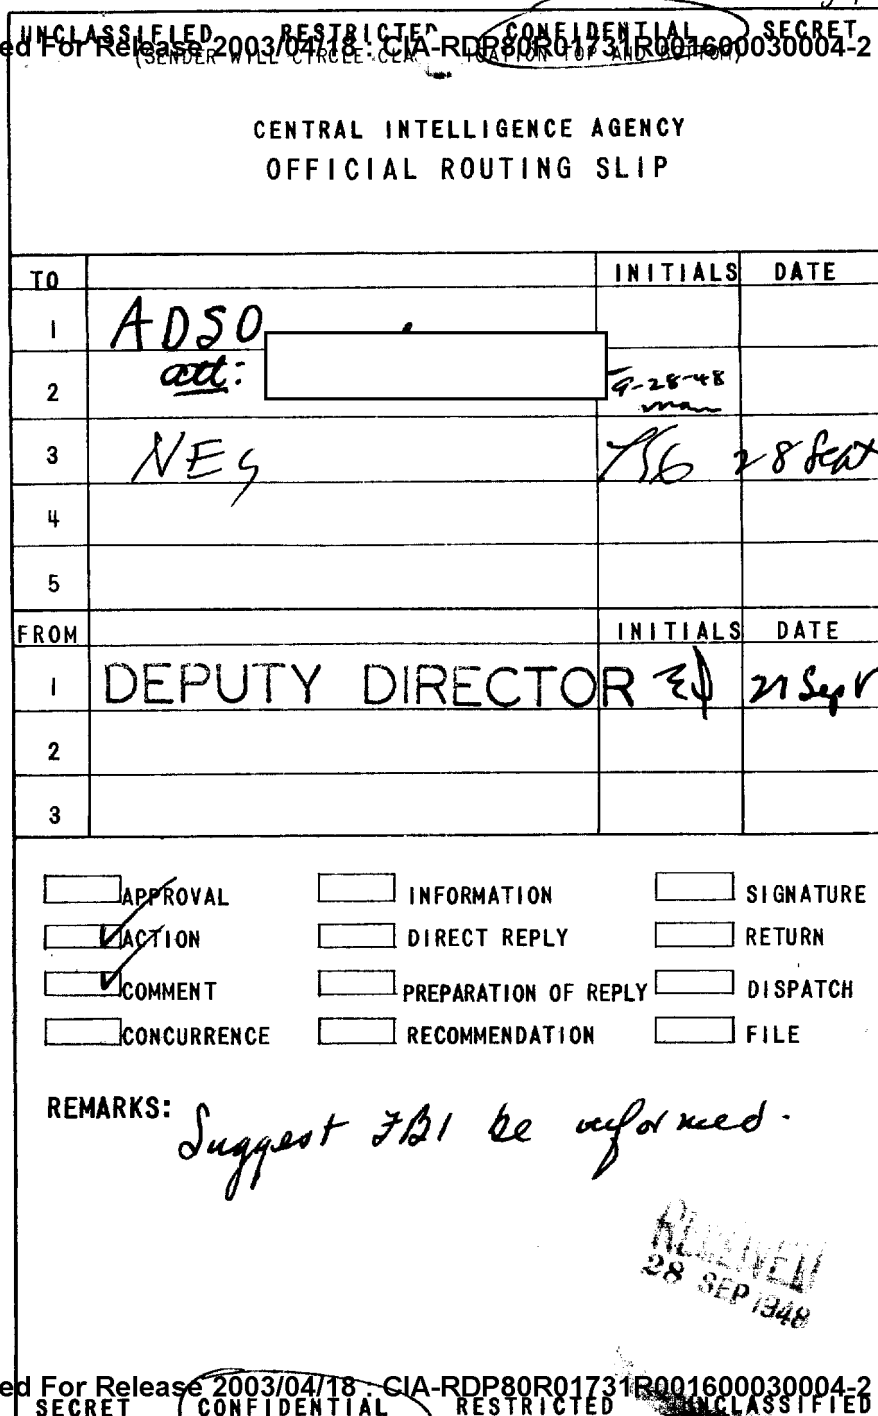 UNCLASSIFIED RESTRICTED CONFIDENTIAL SECRET
ed For Release 2003/04/18 : CIA-RDP80R01731R001600030004-2
(SENDER WILL CIRCLE CLA TOP AND BOTTOM)
CENTRAL INTELLIGENCE AGENCY
OFFICIAL ROUTING SLIP
TO INITIALS DATE
1 ADSO
att:
2 9-28-48
3 28 Sept
4
5
FROM INITIALS DATE
1 DEPUTY DIRECTOR 27 Sept
2
3
APPROVAL INFORMATION SIGNATURE
ACTION DIRECT REPLY RETURN
COMMENT PREPARATION OF REPLY DISPATCH
CONCURRENCE RECOMMENDATION FILE
REMARKS: Suggest FBI be informed.
RECEIVED
28 SEP 1948
ed For Release 2003/04/18 : CIA-RDP80R01731R001600030004-2
SECRET CONFIDENTIAL RESTRICTED UNCLASSIFIED